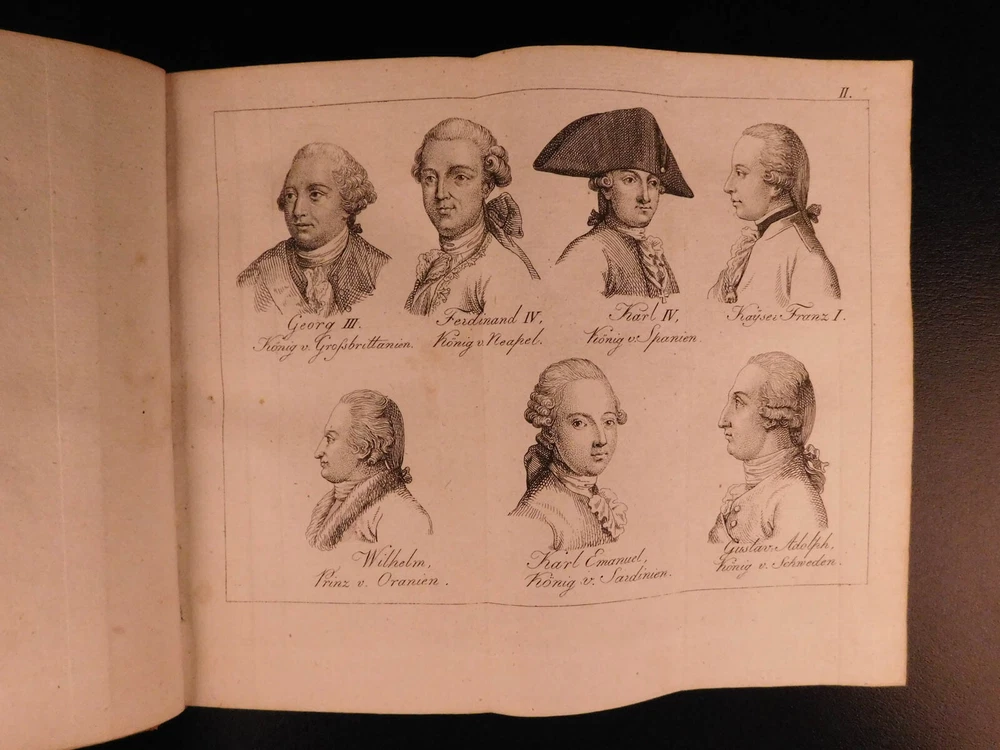 II.
Georg III.
König v. Großbrittanien.
Ferdinand IV.
König v. Neapel.
Karl IV,
König v. Spanien.
Kaÿser Franz I.
Wilhelm,
Prinz v. Oranien.
Karl Emanuel,
König v. Sardinien.
Gustav Adolph,
König v. Schweden.